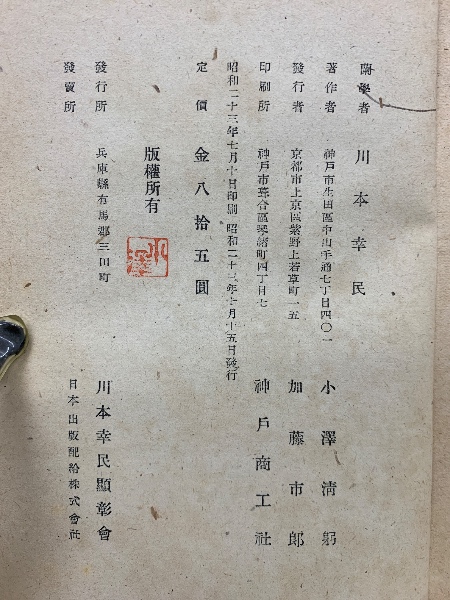 蘭學者 川本幸民
著作者 神戶市生田區中山手通七丁目四〇一 小澤淸躬
發行者 京都市上京區紫野上若草町一五 加藤市郎
印刷所 神戶市葺合區琴緖町四丁目七 神戶商工社
昭和二十三年七月十日印刷 昭和二十三年七月十五日發行
定價 金八拾五圓
版權所有
小澤
發行所 兵庫縣有馬郡三田町 川本幸民顯彰會
發賣所 日本出版配給株式會社